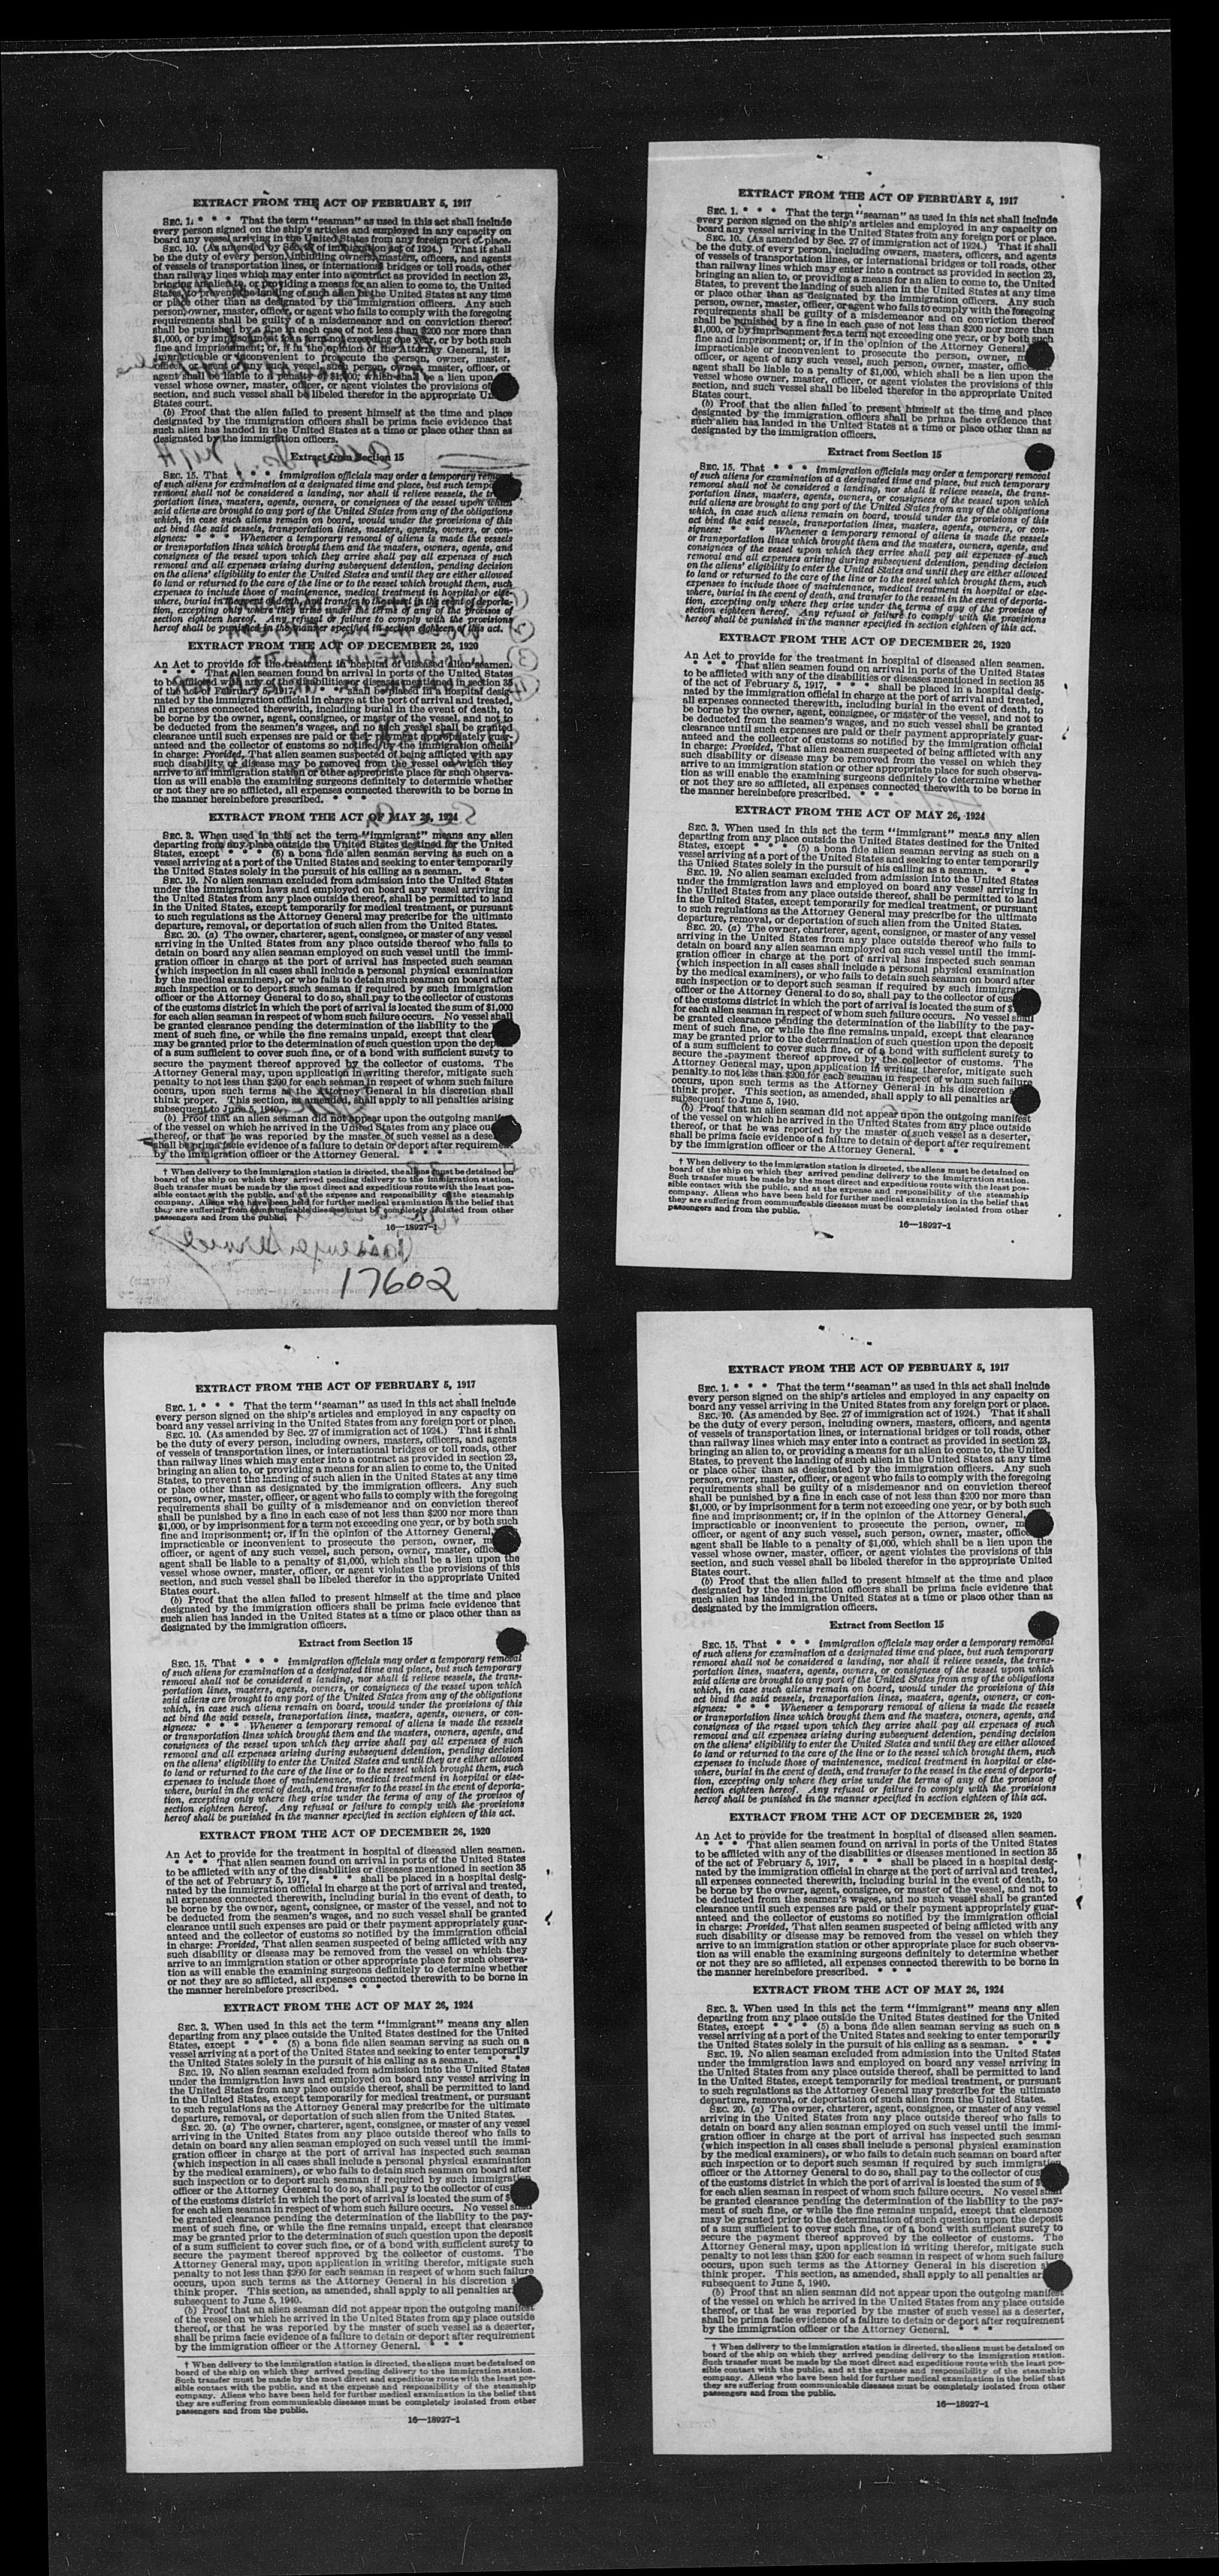 EXTRACT FROM THE ACT OF FEBRUARY 5, 1917
SEC. 1. * * * That the term "seaman" as used in this act shall include
every person signed on the ship's articles and employed in any capacity on
board any vessel arriving in the United States from any foreign port or place.
SEC. 10. (As amended by Sec. 27 of immigration act of 1924.) That it shall
be the duty of every person, including owners, masters, officers, and agents
of vessels of transportation lines, or international bridges or toll roads, other
than railway lines which may enter into a contract as provided in section 23,
bringing an alien to, or providing a means for an alien to come to, the United
States, to prevent the landing of such alien in the United States at any time
or place other than as designated by the immigration officers. Any such
person, owner, master, officer, or agent who fails to comply with the foregoing
requirements shall be guilty of a misdemeanor and on conviction thereof
shall be punished by a fine in each case of not less than $200 nor more than
$1,000, or by imprisonment for a term not exceeding one year, or by both such
fine and imprisonment; or, if in the opinion of the Attorney General, it is
impracticable or inconvenient to prosecute the person, owner, master,
officer, or agent of any such vessel, such person, owner, master, officer, or
agent shall be liable to a penalty of $1,000, which shall be a lien upon
vessel whose owner, master, officer, or agent violates the provisions of
section, and such vessel shall be libeled therefor in the appropriate
States court.
(b) Proof that the alien failed to present himself at the time and place
designated by the immigration officers shall be prima facie evidence that
such alien has landed in the United States at a time or place other than as
designated by the immigration officers.
Extract from Section 15
SEC. 15. That * * * immigration officials may order a temporary removal
of such aliens for examination at a designated time and place, but such
removal shall not be considered a landing, nor shall it relieve vessels, the
portation lines, masters, agents, owners, or consignees of the vessel upon which
said aliens are brought to any port of the United States from any of the obligations
which, in case such aliens remain on board, would under the provisions of this
act bind the said vessels, transportation lines, masters, agents, owners, or con-
signees: * * * Whenever a temporary removal of aliens is made the vessels
or transportation lines which brought them and the masters, owners, agents, and
consignees of the vessel upon which they arrive shall pay all expenses of such
removal and all expenses arising during subsequent detention, pending decision
on the aliens' eligibility to enter the United States and until they are either allowed
to land or returned to the care of the line or to the vessel which brought them, such
expenses to include those of maintenance, medical treatment in hospital or else-
where, burial in the event of death, and transfer to the vessel in the event of deporta-
tion, excepting only where they arise under the terms of any of the provisos of
section eighteen hereof. Any refusal or failure to comply with the provisions
hereof shall be punished in the manner specified in section eighteen of this act.
EXTRACT FROM THE ACT OF DECEMBER 26, 1920
An Act to provide for the treatment in hospital of diseased alien seamen.
* * * That alien seamen found on arrival in ports of the United States
to be afflicted with any of the disabilities or diseases mentioned in section 35
of the act of February 5, 1917, * * * shall be placed in a hospital desig-
nated by the immigration official in charge at the port of arrival and treated,
all expenses connected therewith, including burial in the event of death, to
be borne by the owner, agent, consignee, or master of the vessel, and not to
be deducted from the seamen's wages, and no such vessel shall be granted
clearance until such expenses are paid or their payment appropriately guar-
anteed and the collector of customs so notified by the immigration official
in charge: Provided, That alien seamen suspected of being afflicted with any
such disability or disease may be removed from the vessel on which they
arrive to an immigration station or other appropriate place for such observa-
tion as will enable the examining surgeons definitely to determine whether
or not they are so afflicted, all expenses connected therewith to be borne in
the manner hereinbefore prescribed. * * *
EXTRACT FROM THE ACT OF MAY 26, 1924
SEC. 3. When used in this act the term "immigrant" means any alien
departing from any place outside the United States destined for the United
States, except * * * (5) a bona fide alien seaman serving as such on a
vessel arriving at a port of the United States and seeking to enter temporarily
the United States solely in the pursuit of his calling as a seaman. * * *
SEC. 19. No alien seaman excluded from admission into the United States
under the immigration laws and employed on board any vessel arriving in
the United States from any place outside thereof, shall be permitted to land
in the United States, except temporarily for medical treatment, or pursuant
to such regulations as the Attorney General may prescribe for the ultimate
departure, removal, or deportation of such alien from the United States.
SEC. 20. (a) The owner, charterer, agent, consignee, or master of any vessel
arriving in the United States from any place outside thereof who fails to
detain on board any alien seaman employed on such vessel until the immi-
gration officer in charge at the port of arrival has inspected such seaman
(which inspection in all cases shall include a personal physical examination
by the medical examiners), or who fails to detain such seaman on board after
such inspection or to deport such seaman if required by such immigration
officer or the Attorney General to do so, shall pay to the collector of customs
of the customs district in which the port of arrival is located the sum of $1,000
for each alien seaman in respect of whom such failure occurs. No vessel shall
be granted clearance pending the determination of the liability to the
ment of such fine, or while the fine remains unpaid, except that
may be granted prior to the determination of such question upon the
of a sum sufficient to cover such fine, or of a bond with sufficient surety to
secure the payment thereof approved by the collector of customs. The
Attorney General may, upon application in writing therefor, mitigate such
penalty to not less than $200 for each seaman in respect of whom such failure
occurs, upon such terms as the Attorney General in his discretion shall
think proper. This section, as amended, shall apply to all penalties arising
subsequent to June 5, 1940.
(b) Proof that an alien seaman did not appear upon the outgoing manifest
of the vessel on which he arrived in the United States from any place
thereof, or that he was reported by the master of such vessel as a
shall be prima facie evidence of a failure to detain or deport after requirement
by the immigration officer or the Attorney General. * * *
† When delivery to the immigration station is directed, the aliens must be detained on
board of the ship on which they arrived pending delivery to the immigration station.
Such transfer must be made by the most direct and expeditious route with the least pos-
sible contact with the public, and at the expense and responsibility of the steamship
company. Aliens who have been held for further medical examination in the belief that
they are suffering from communicable diseases must be completely isolated from other
passengers and from the public.
16—18927-1
17602
EXTRACT FROM THE ACT OF FEBRUARY 5, 1917
SEC. 1. * * * That the term "seaman" as used in this act shall include
every person signed on the ship's articles and employed in any capacity on
board any vessel arriving in the United States from any foreign port or place.
SEC. 10. (As amended by Sec. 27 of immigration act of 1924.) That it shall
be the duty of every person, including owners, masters, officers, and agents
of vessels of transportation lines, or international bridges or toll roads, other
than railway lines which may enter into a contract as provided in section 23,
bringing an alien to, or providing a means for an alien to come to, the United
States, to prevent the landing of such alien in the United States at any time
or place other than as designated by the immigration officers. Any such
person, owner, master, officer, or agent who fails to comply with the foregoing
requirements shall be guilty of a misdemeanor and on conviction thereof
shall be punished by a fine in each case of not less than $200 nor more than
$1,000, or by imprisonment for a term not exceeding one year, or by both such
fine and imprisonment; or, if in the opinion of the Attorney General,
impracticable or inconvenient to prosecute the person, owner,
officer, or agent of any such vessel, such person, owner, master,
agent shall be liable to a penalty of $1,000, which shall be a lien upon the
vessel whose owner, master, officer, or agent violates the provisions of this
section, and such vessel shall be libeled therefor in the appropriate United
States court.
(b) Proof that the alien failed to present himself at the time and place
designated by the immigration officers shall be prima facie evidence that
such alien has landed in the United States at a time or place other than as
designated by the immigration officers.
Extract from Section 15
SEC. 15. That * * * immigration officials may order a temporary removal
of such aliens for examination at a designated time and place, but such temporary
removal shall not be considered a landing, nor shall it relieve vessels, the trans-
portation lines, masters, agents, owners, or consignees of the vessel upon which
said aliens are brought to any port of the United States from any of the obligations
which, in case such aliens remain on board, would under the provisions of this
act bind the said vessels, transportation lines, masters, agents, owners, or con-
signees: * * * Whenever a temporary removal of aliens is made the vessels
or transportation lines which brought them and the masters, owners, agents, and
consignees of the vessel upon which they arrive shall pay all expenses of such
removal and all expenses arising during subsequent detention, pending decision
on the aliens' eligibility to enter the United States and until they are either allowed
to land or returned to the care of the line or to the vessel which brought them, such
expenses to include those of maintenance, medical treatment in hospital or else-
where, burial in the event of death, and transfer to the vessel in the event of deporta-
tion, excepting only where they arise under the terms of any of the provisos of
section eighteen hereof. Any refusal or failure to comply with the provisions
hereof shall be punished in the manner specified in section eighteen of this act.
EXTRACT FROM THE ACT OF DECEMBER 26, 1920
An Act to provide for the treatment in hospital of diseased alien seamen.
* * * That alien seamen found on arrival in ports of the United States
to be afflicted with any of the disabilities or diseases mentioned in section 35
of the act of February 5, 1917, * * * shall be placed in a hospital desig-
nated by the immigration official in charge at the port of arrival and treated,
all expenses connected therewith, including burial in the event of death, to
be borne by the owner, agent, consignee, or master of the vessel, and not to
be deducted from the seamen's wages, and no such vessel shall be granted
clearance until such expenses are paid or their payment appropriately guar-
anteed and the collector of customs so notified by the immigration official
in charge: Provided, That alien seamen suspected of being afflicted with any
such disability or disease may be removed from the vessel on which they
arrive to an immigration station or other appropriate place for such observa-
tion as will enable the examining surgeons definitely to determine whether
or not they are so afflicted, all expenses connected therewith to be borne in
the manner hereinbefore prescribed. * * *
EXTRACT FROM THE ACT OF MAY 26, 1924
SEC. 3. When used in this act the term "immigrant" means any alien
departing from any place outside the United States destined for the United
States, except * * * (5) a bona fide alien seaman serving as such on a
vessel arriving at a port of the United States and seeking to enter temporarily
the United States solely in the pursuit of his calling as a seaman. * * *
SEC. 19. No alien seaman excluded from admission into the United States
under the immigration laws and employed on board any vessel arriving in
the United States from any place outside thereof, shall be permitted to land
in the United States, except temporarily for medical treatment, or pursuant
to such regulations as the Attorney General may prescribe for the ultimate
departure, removal, or deportation of such alien from the United States.
SEC. 20. (a) The owner, charterer, agent, consignee, or master of any vessel
arriving in the United States from any place outside thereof who fails to
detain on board any alien seaman employed on such vessel until the immi-
gration officer in charge at the port of arrival has inspected such seaman
(which inspection in all cases shall include a personal physical examination
by the medical examiners), or who fails to detain such seaman on board after
such inspection or to deport such seaman if required by such immigration
officer or the Attorney General to do so, shall pay to the collector of
of the customs district in which the port of arrival is located the sum of
for each alien seaman in respect of whom such failure occurs. No vessel shall
be granted clearance pending the determination of the liability to the pay-
ment of such fine, or while the fine remains unpaid, except that clearance
may be granted prior to the determination of such question upon the deposit
of a sum sufficient to cover such fine, or of a bond with sufficient surety to
secure the payment thereof approved by the collector of customs. The
Attorney General may, upon application in writing therefor, mitigate such
penalty to not less than $200 for each seaman in respect of whom such failure
occurs, upon such terms as the Attorney General in his discretion
think proper. This section, as amended, shall apply to all penalties
subsequent to June 5, 1940.
(b) Proof that an alien seaman did not appear upon the outgoing manifest
of the vessel on which he arrived in the United States from any place outside
thereof, or that he was reported by the master of such vessel as a deserter,
shall be prima facie evidence of a failure to detain or deport after requirement
by the immigration officer or the Attorney General. * * *
† When delivery to the immigration station is directed, the aliens must be detained on
board of the ship on which they arrived pending delivery to the immigration station.
Such transfer must be made by the most direct and expeditious route with the least pos-
sible contact with the public, and at the expense and responsibility of the steamship
company. Aliens who have been held for further medical examination in the belief that
they are suffering from communicable diseases must be completely isolated from other
passengers and from the public.
16—18927-1
EXTRACT FROM THE ACT OF FEBRUARY 5, 1917
SEC. 1. * * * That the term "seaman" as used in this act shall include
every person signed on the ship's articles and employed in any capacity on
board any vessel arriving in the United States from any foreign port or place.
SEC. 10. (As amended by Sec. 27 of immigration act of 1924.) That it shall
be the duty of every person, including owners, masters, officers, and agents
of vessels of transportation lines, or international bridges or toll roads, other
than railway lines which may enter into a contract as provided in section 23,
bringing an alien to, or providing a means for an alien to come to, the United
States, to prevent the landing of such alien in the United States at any time
or place other than as designated by the immigration officers. Any such
person, owner, master, officer, or agent who fails to comply with the foregoing
requirements shall be guilty of a misdemeanor and on conviction thereof
shall be punished by a fine in each case of not less than $200 nor more than
$1,000, or by imprisonment for a term not exceeding one year, or by both such
fine and imprisonment; or, if in the opinion of the Attorney General,
impracticable or inconvenient to prosecute the person, owner,
officer, or agent of any such vessel, such person, owner, master,
agent shall be liable to a penalty of $1,000, which shall be a lien upon the
vessel whose owner, master, officer, or agent violates the provisions of this
section, and such vessel shall be libeled therefor in the appropriate United
States court.
(b) Proof that the alien failed to present himself at the time and place
designated by the immigration officers shall be prima facie evidence that
such alien has landed in the United States at a time or place other than as
designated by the immigration officers.
Extract from Section 15
SEC. 15. That * * * immigration officials may order a temporary removal
of such aliens for examination at a designated time and place, but such temporary
removal shall not be considered a landing, nor shall it relieve vessels, the trans-
portation lines, masters, agents, owners, or consignees of the vessel upon which
said aliens are brought to any port of the United States from any of the obligations
which, in case such aliens remain on board, would under the provisions of this
act bind the said vessels, transportation lines, masters, agents, owners, or con-
signees: * * * Whenever a temporary removal of aliens is made the vessels
or transportation lines which brought them and the masters, owners, agents, and
consignees of the vessel upon which they arrive shall pay all expenses of such
removal and all expenses arising during subsequent detention, pending decision
on the aliens' eligibility to enter the United States and until they are either allowed
to land or returned to the care of the line or to the vessel which brought them, such
expenses to include those of maintenance, medical treatment in hospital or else-
where, burial in the event of death, and transfer to the vessel in the event of deporta-
tion, excepting only where they arise under the terms of any of the provisos of
section eighteen hereof. Any refusal or failure to comply with the provisions
hereof shall be punished in the manner specified in section eighteen of this act.
EXTRACT FROM THE ACT OF DECEMBER 26, 1920
An Act to provide for the treatment in hospital of diseased alien seamen.
* * * That alien seamen found on arrival in ports of the United States
to be afflicted with any of the disabilities or diseases mentioned in section 35
of the act of February 5, 1917, * * * shall be placed in a hospital desig-
nated by the immigration official in charge at the port of arrival and treated,
all expenses connected therewith, including burial in the event of death, to
be borne by the owner, agent, consignee, or master of the vessel, and not to
be deducted from the seamen's wages, and no such vessel shall be granted
clearance until such expenses are paid or their payment appropriately guar-
anteed and the collector of customs so notified by the immigration official
in charge: Provided, That alien seamen suspected of being afflicted with any
such disability or disease may be removed from the vessel on which they
arrive to an immigration station or other appropriate place for such observa-
tion as will enable the examining surgeons definitely to determine whether
or not they are so afflicted, all expenses connected therewith to be borne in
the manner hereinbefore prescribed. * * *
EXTRACT FROM THE ACT OF MAY 26, 1924
SEC. 3. When used in this act the term "immigrant" means any alien
departing from any place outside the United States destined for the United
States, except * * * (5) a bona fide alien seaman serving as such on a
vessel arriving at a port of the United States and seeking to enter temporarily
the United States solely in the pursuit of his calling as a seaman. * * *
SEC. 19. No alien seaman excluded from admission into the United States
under the immigration laws and employed on board any vessel arriving in
the United States from any place outside thereof, shall be permitted to land
in the United States, except temporarily for medical treatment, or pursuant
to such regulations as the Attorney General may prescribe for the ultimate
departure, removal, or deportation of such alien from the United States.
SEC. 20. (a) The owner, charterer, agent, consignee, or master of any vessel
arriving in the United States from any place outside thereof who fails to
detain on board any alien seaman employed on such vessel until the immi-
gration officer in charge at the port of arrival has inspected such seaman
(which inspection in all cases shall include a personal physical examination
by the medical examiners), or who fails to detain such seaman on board after
such inspection or to deport such seaman if required by such immigration
officer or the Attorney General to do so, shall pay to the collector of
of the customs district in which the port of arrival is located the sum of
for each alien seaman in respect of whom such failure occurs. No vessel shall
be granted clearance pending the determination of the liability to the pay-
ment of such fine, or while the fine remains unpaid, except that clearance
may be granted prior to the determination of such question upon the deposit
of a sum sufficient to cover such fine, or of a bond with sufficient surety to
secure the payment thereof approved by the collector of customs. The
Attorney General may, upon application in writing therefor, mitigate such
penalty to not less than $200 for each seaman in respect of whom such failure
occurs, upon such terms as the Attorney General in his discretion
think proper. This section, as amended, shall apply to all penalties
subsequent to June 5, 1940.
(b) Proof that an alien seaman did not appear upon the outgoing manifest
of the vessel on which he arrived in the United States from any place outside
thereof, or that he was reported by the master of such vessel as a deserter,
shall be prima facie evidence of a failure to detain or deport after requirement
by the immigration officer or the Attorney General. * * *
† When delivery to the immigration station is directed, the aliens must be detained on
board of the ship on which they arrived pending delivery to the immigration station.
Such transfer must be made by the most direct and expeditious route with the least pos-
sible contact with the public, and at the expense and responsibility of the steamship
company. Aliens who have been held for further medical examination in the belief that
they are suffering from communicable diseases must be completely isolated from other
passengers and from the public.
16—18927-1
EXTRACT FROM THE ACT OF FEBRUARY 5, 1917
SEC. 1. * * * That the term "seaman" as used in this act shall include
every person signed on the ship's articles and employed in any capacity on
board any vessel arriving in the United States from any foreign port or place.
SEC. 10. (As amended by Sec. 27 of immigration act of 1924.) That it shall
be the duty of every person, including owners, masters, officers, and agents
of vessels of transportation lines, or international bridges or toll roads, other
than railway lines which may enter into a contract as provided in section 23,
bringing an alien to, or providing a means for an alien to come to, the United
States, to prevent the landing of such alien in the United States at any time
or place other than as designated by the immigration officers. Any such
person, owner, master, officer, or agent who fails to comply with the foregoing
requirements shall be guilty of a misdemeanor and on conviction thereof
shall be punished by a fine in each case of not less than $200 nor more than
$1,000, or by imprisonment for a term not exceeding one year, or by both such
fine and imprisonment; or, if in the opinion of the Attorney General,
impracticable or inconvenient to prosecute the person, owner,
officer, or agent of any such vessel, such person, owner, master,
agent shall be liable to a penalty of $1,000, which shall be a lien upon the
vessel whose owner, master, officer, or agent violates the provisions of this
section, and such vessel shall be libeled therefor in the appropriate United
States court.
(b) Proof that the alien failed to present himself at the time and place
designated by the immigration officers shall be prima facie evidence that
such alien has landed in the United States at a time or place other than as
designated by the immigration officers.
Extract from Section 15
SEC. 15. That * * * immigration officials may order a temporary removal
of such aliens for examination at a designated time and place, but such temporary
removal shall not be considered a landing, nor shall it relieve vessels, the trans-
portation lines, masters, agents, owners, or consignees of the vessel upon which
said aliens are brought to any port of the United States from any of the obligations
which, in case such aliens remain on board, would under the provisions of this
act bind the said vessels, transportation lines, masters, agents, owners, or con-
signees: * * * Whenever a temporary removal of aliens is made the vessels
or transportation lines which brought them and the masters, owners, agents, and
consignees of the vessel upon which they arrive shall pay all expenses of such
removal and all expenses arising during subsequent detention, pending decision
on the aliens' eligibility to enter the United States and until they are either allowed
to land or returned to the care of the line or to the vessel which brought them, such
expenses to include those of maintenance, medical treatment in hospital or else-
where, burial in the event of death, and transfer to the vessel in the event of deporta-
tion, excepting only where they arise under the terms of any of the provisos of
section eighteen hereof. Any refusal or failure to comply with the provisions
hereof shall be punished in the manner specified in section eighteen of this act.
EXTRACT FROM THE ACT OF DECEMBER 26, 1920
An Act to provide for the treatment in hospital of diseased alien seamen.
* * * That alien seamen found on arrival in ports of the United States
to be afflicted with any of the disabilities or diseases mentioned in section 35
of the act of February 5, 1917, * * * shall be placed in a hospital desig-
nated by the immigration official in charge at the port of arrival and treated,
all expenses connected therewith, including burial in the event of death, to
be borne by the owner, agent, consignee, or master of the vessel, and not to
be deducted from the seamen's wages, and no such vessel shall be granted
clearance until such expenses are paid or their payment appropriately guar-
anteed and the collector of customs so notified by the immigration official
in charge: Provided, That alien seamen suspected of being afflicted with any
such disability or disease may be removed from the vessel on which they
arrive to an immigration station or other appropriate place for such observa-
tion as will enable the examining surgeons definitely to determine whether
or not they are so afflicted, all expenses connected therewith to be borne in
the manner hereinbefore prescribed. * * *
EXTRACT FROM THE ACT OF MAY 26, 1924
SEC. 3. When used in this act the term "immigrant" means any alien
departing from any place outside the United States destined for the United
States, except * * * (5) a bona fide alien seaman serving as such on a
vessel arriving at a port of the United States and seeking to enter temporarily
the United States solely in the pursuit of his calling as a seaman. * * *
SEC. 19. No alien seaman excluded from admission into the United States
under the immigration laws and employed on board any vessel arriving in
the United States from any place outside thereof, shall be permitted to land
in the United States, except temporarily for medical treatment, or pursuant
to such regulations as the Attorney General may prescribe for the ultimate
departure, removal, or deportation of such alien from the United States.
SEC. 20. (a) The owner, charterer, agent, consignee, or master of any vessel
arriving in the United States from any place outside thereof who fails to
detain on board any alien seaman employed on such vessel until the immi-
gration officer in charge at the port of arrival has inspected such seaman
(which inspection in all cases shall include a personal physical examination
by the medical examiners), or who fails to detain such seaman on board after
such inspection or to deport such seaman if required by such immigration
officer or the Attorney General to do so, shall pay to the collector of
of the customs district in which the port of arrival is located the sum of
for each alien seaman in respect of whom such failure occurs. No vessel shall
be granted clearance pending the determination of the liability to the pay-
ment of such fine, or while the fine remains unpaid, except that clearance
may be granted prior to the determination of such question upon the deposit
of a sum sufficient to cover such fine, or of a bond with sufficient surety to
secure the payment thereof approved by the collector of customs. The
Attorney General may, upon application in writing therefor, mitigate such
penalty to not less than $200 for each seaman in respect of whom such failure
occurs, upon such terms as the Attorney General in his discretion
think proper. This section, as amended, shall apply to all penalties
subsequent to June 5, 1940.
(b) Proof that an alien seaman did not appear upon the outgoing manifest
of the vessel on which he arrived in the United States from any place outside
thereof, or that he was reported by the master of such vessel as a deserter,
shall be prima facie evidence of a failure to detain or deport after requirement
by the immigration officer or the Attorney General. * * *
† When delivery to the immigration station is directed, the aliens must be detained on
board of the ship on which they arrived pending delivery to the immigration station.
Such transfer must be made by the most direct and expeditious route with the least pos-
sible contact with the public, and at the expense and responsibility of the steamship
company. Aliens who have been held for further medical examination in the belief that
they are suffering from communicable diseases must be completely isolated from other
passengers and from the public.
16—18927-1